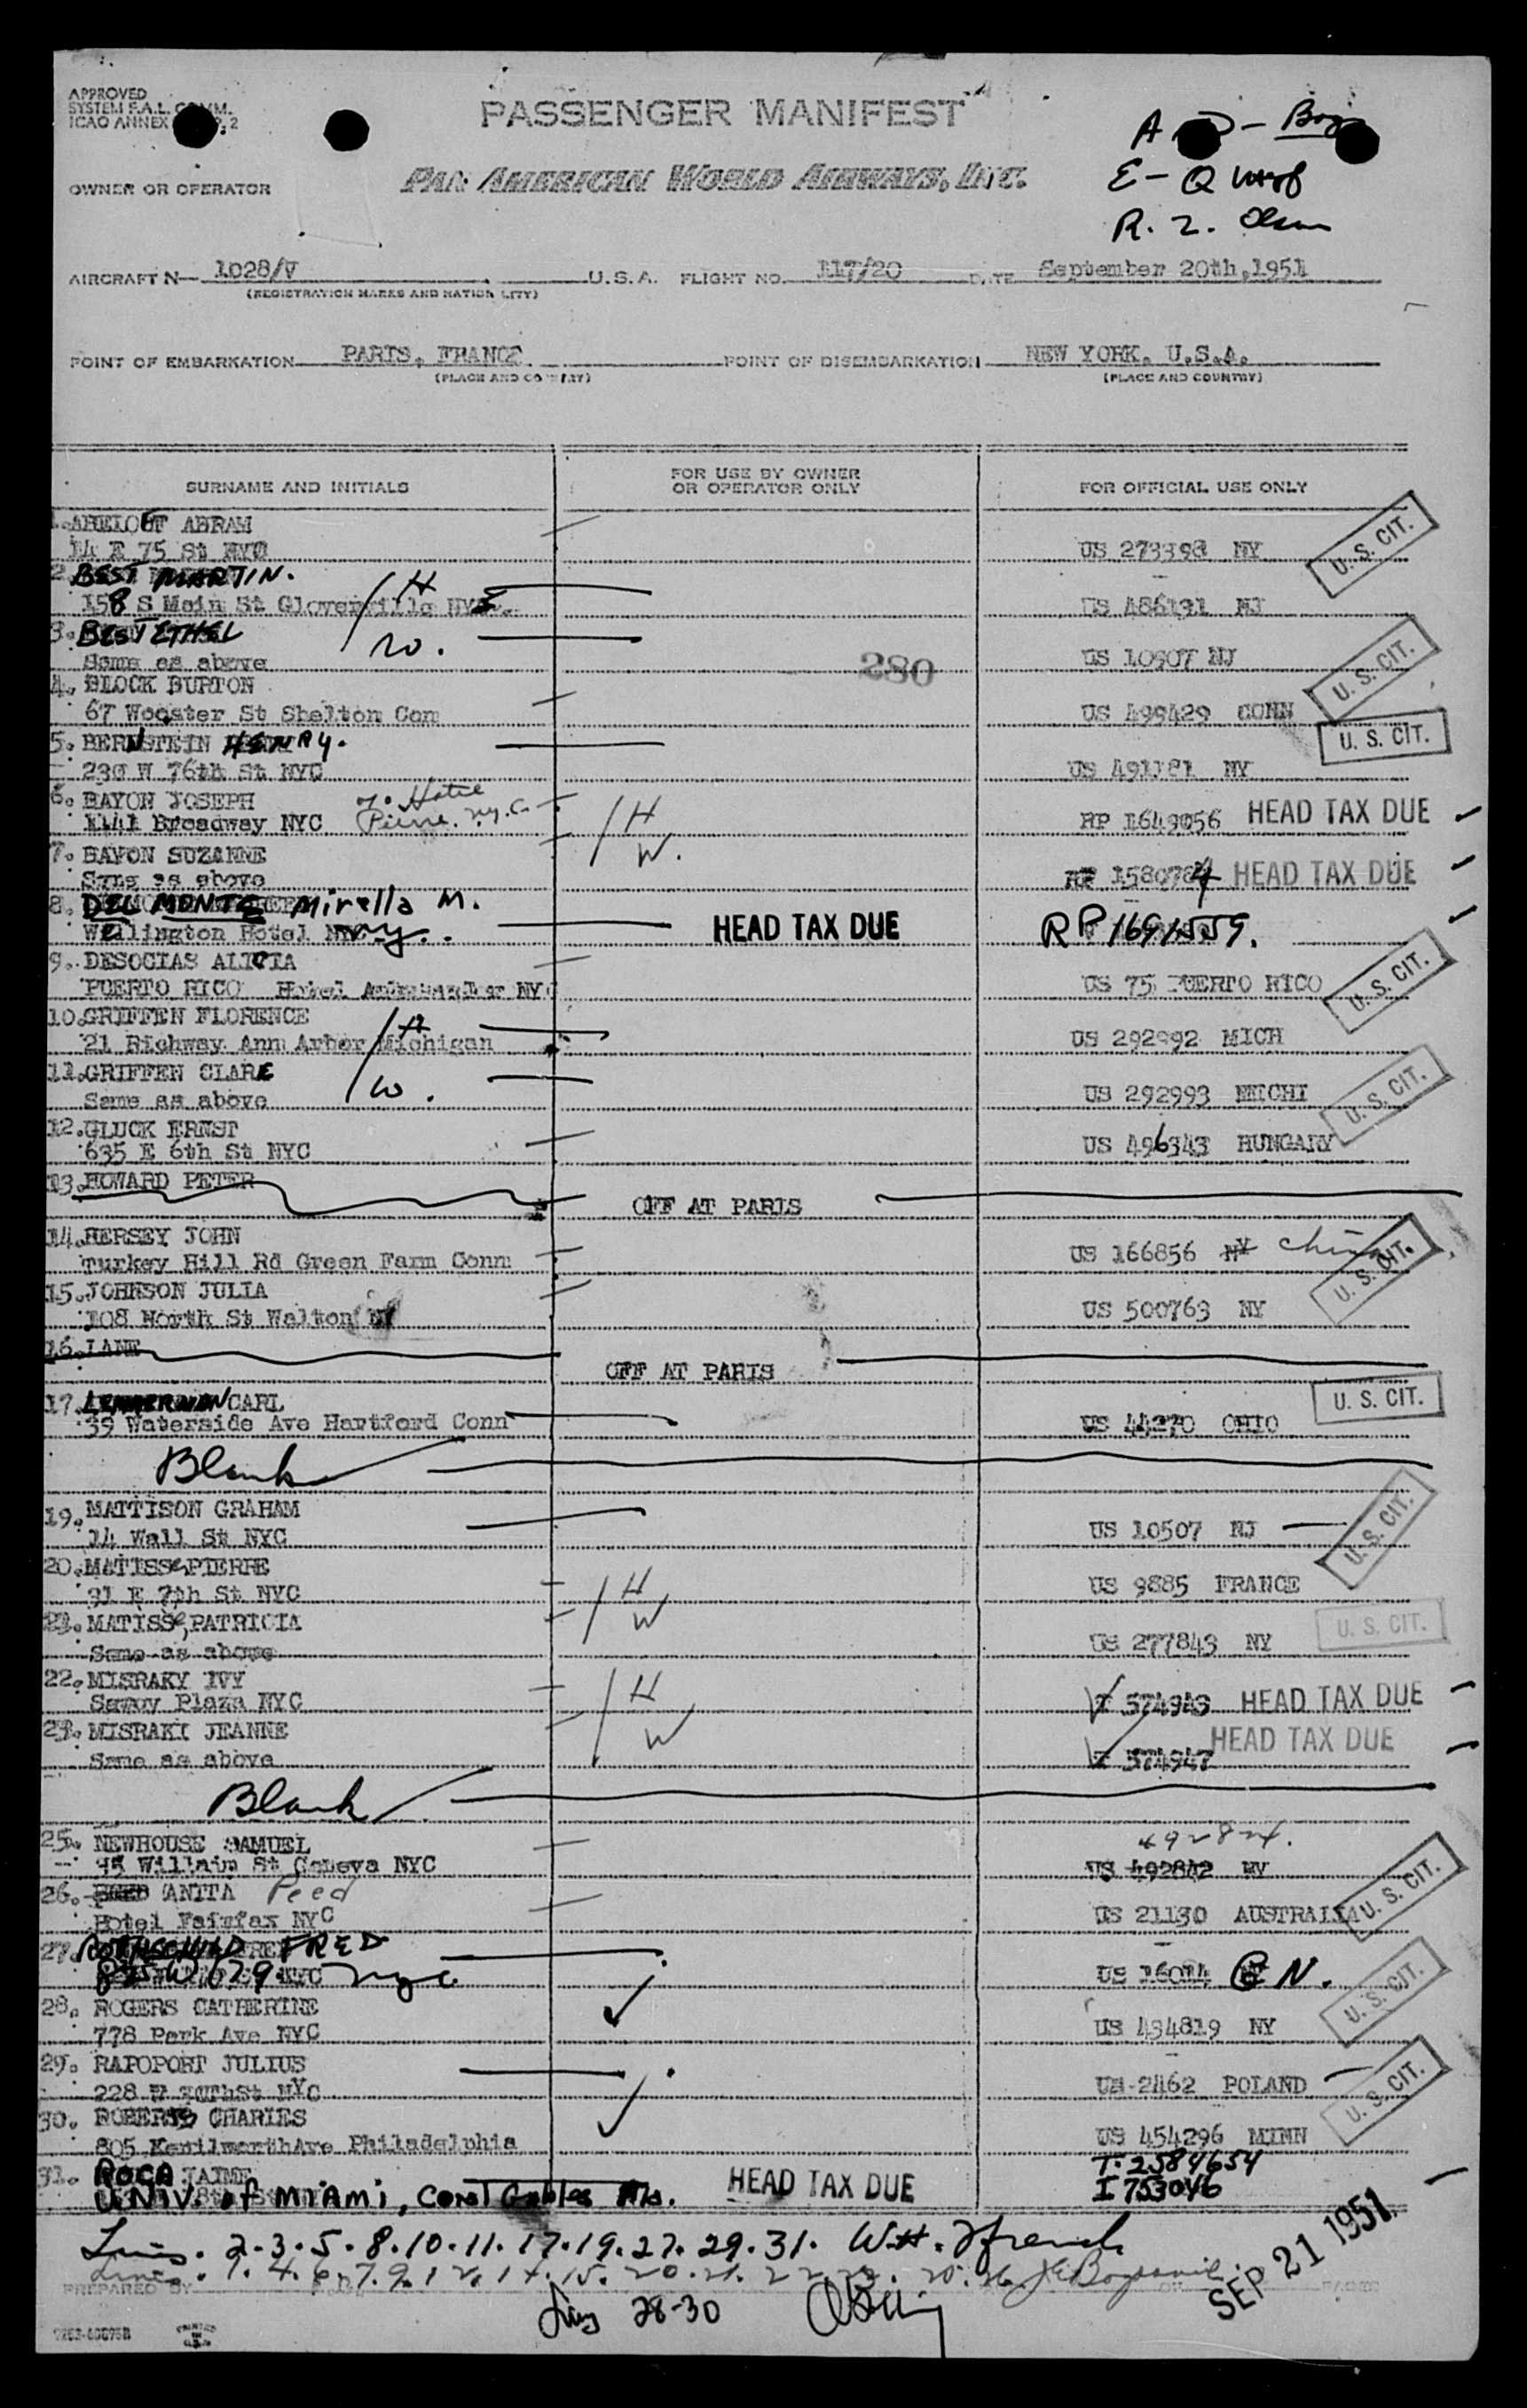 APPROVED
SYSTEM F.A.L. COMM.
ICAO ANNEX 9, 2
PASSENGER MANIFEST
A - D - Boy
E - Q
R. Z. Olsen
OWNER OR OPERATOR
PAN AMERICAN WORLD AIRWAYS, INC.
AIRCRAFT N— 1028/V U.S.A. FLIGHT NO. 117/20 DATE September 20th,1951
(REGISTRATION MARKS AND NATIONALITY)
POINT OF EMBARKATION PARIS, FRANCE. POINT OF DISEMBARKATION NEW YORK. U.S.A.
(PLACE AND COUNTRY) (PLACE AND COUNTRY)
SURNAME AND INITIALS
FOR USE BY OWNER
OR OPERATOR ONLY
FOR OFFICIAL USE ONLY
1. ABRAM
14 E 75 St NYC US 273398 NY U. S. CIT.
2. BEST MARTIN. / H
158 S Main St Gloversville NY US 486191 NJ
3. BEST ETHEL W.
Same as above US 10907 NJ U. S. CIT.
280
4. BLOCK BURTON
67 Wooster St Shelton Con US 499429 CONN
5. BERNSTEIN HENRY. U. S. CIT.
230 W 76th St NYC US 491181 NY
6. BAYON JOSEPH Hotel
1141 Broadway NYC Pierre. N.Y.C. / H RP 1649056 HEAD TAX DUE
7. BAYON SUZANNE W.
Same as above RP 1580784 HEAD TAX DUE
8. DEL MONTE Mirella M.
Wellington Hotel NY. HEAD TAX DUE RP 1691559.
9. DESOCIAS ALICIA
PUERTO RICO Hotel Ambassador NYC US 75 PUERTO RICO U. S. CIT.
10. GRIFFEN FLORENCE / H
21 Highway Ann Arbor Michigan US 292992 MICH
11. GRIFFEN CLARE W.
Same as above US 292993 MEICHI U. S. CIT.
12. GLUCK ERNST
635 E 6th St NYC US 496343 HUNGARY
13. HOWARD PETER
OFF AT PARIS
14. HERSEY JOHN
Turkey Hill Rd Green Farm Conn US 166856 NY China U. S. CIT.
15. JOHNSON JULIA
108 North St Walton NY US 500763 NY
16. LANE
OFF AT PARIS
17. CARL U. S. CIT.
39 Waterside Ave Hartford Conn US 44270 OHIO
Blank
19. MATTISON GRAHAM
14 Wall St NYC US 10507 NJ U. S. CIT.
20. MATISSE PIERRE
31 E 7th St NYC / H US 9885 FRANCE
21. MATISSE, PATRICIA W
Same as above US 277843 NY U. S. CIT.
22. MISRAKY IVY
Savoy Plaza NYC / H I 574943 HEAD TAX DUE
23. MISRAKI JEANNE W
Same as above I 574947 HEAD TAX DUE
Blank
25. NEWHOUSE SAMUEL 492824.
95 Willaim St Geneva NYC US 492842 NY
26. ANITA Peed
Hotel Fairfax NYC US 21130 AUSTRALIA U. S. CIT.
27. ROTHSCHILD FRED
NYC US 16014 GN.
28. ROGERS CATHERINE
778 Park Ave NYC US 494819 NY U. S. CIT.
29. RAPOPORT JULIUS
228 NYC US 2462 POLAND
30. ROBERTS CHARLES U. S. CIT.
805 Kenilworth Ave Philadelphia US 454296 MINN
31. ROCA JAIME T. 2584654
UNIV. of MIAMI, Coral Gables Fla. HEAD TAX DUE I 753046
Lines. 2-3-5-8-10-11-17-19-27-29-31. W.H. French
Lines. 1. 4. 6. 7. 9. 12. 14. 15. 20. 21. 22. 23. 25. 26.
PREPARED BY
SEP 21 1951
Lines 28-30